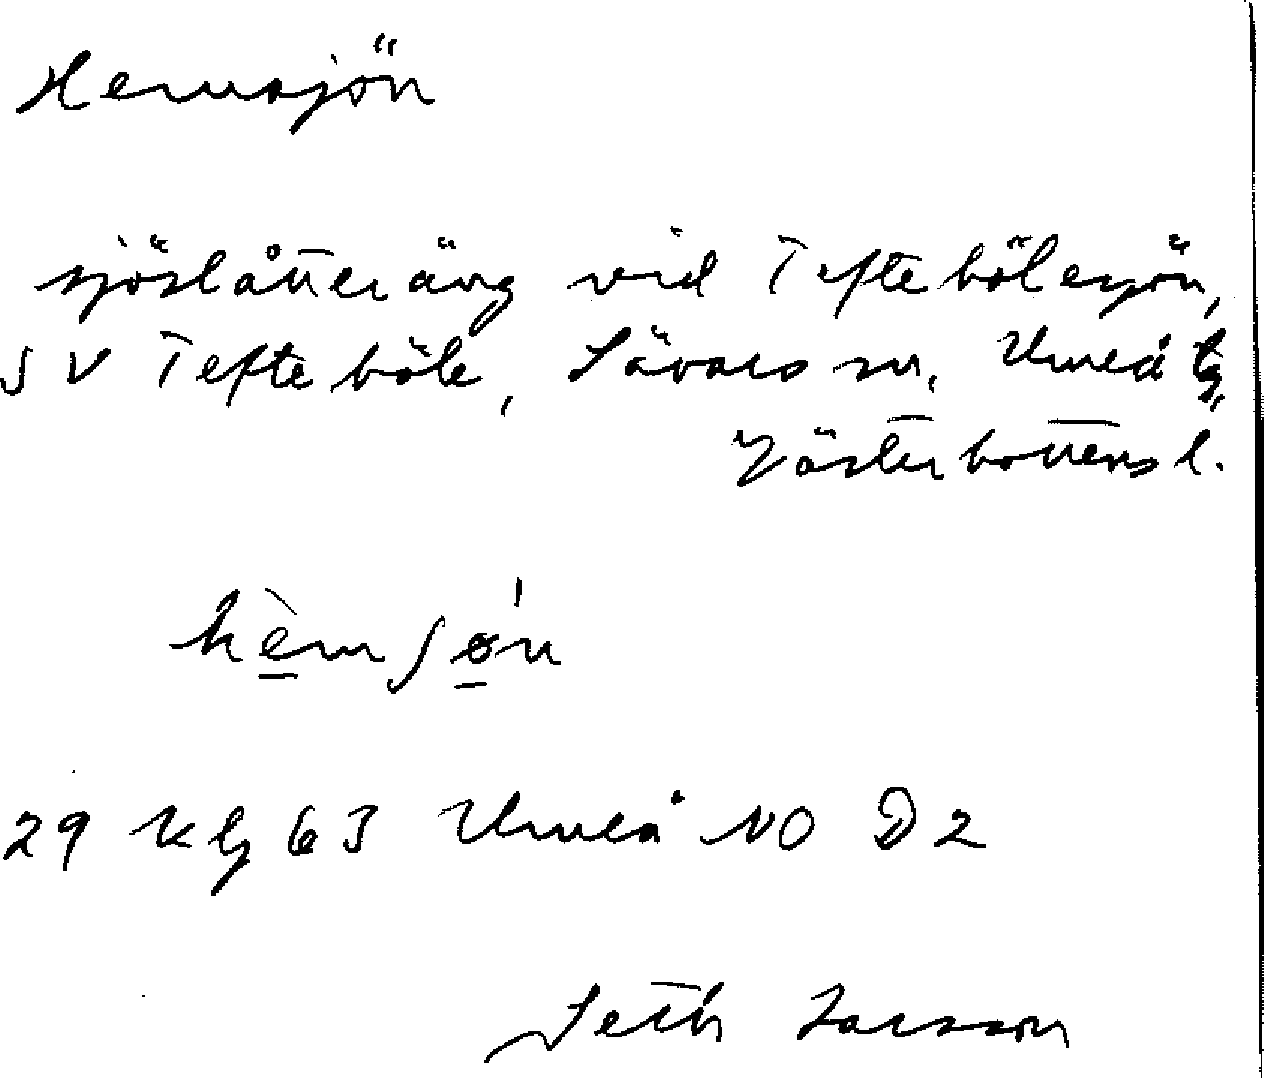 Hemsjön
sjöslåtteräng vid Teftebölesjön,
SV Tefteböle, Sävars sn, Umeå tg,
Västerbottens l.
hèmʃǿn
29 Klg 63 Umeå NO D 2
Seth Larsson